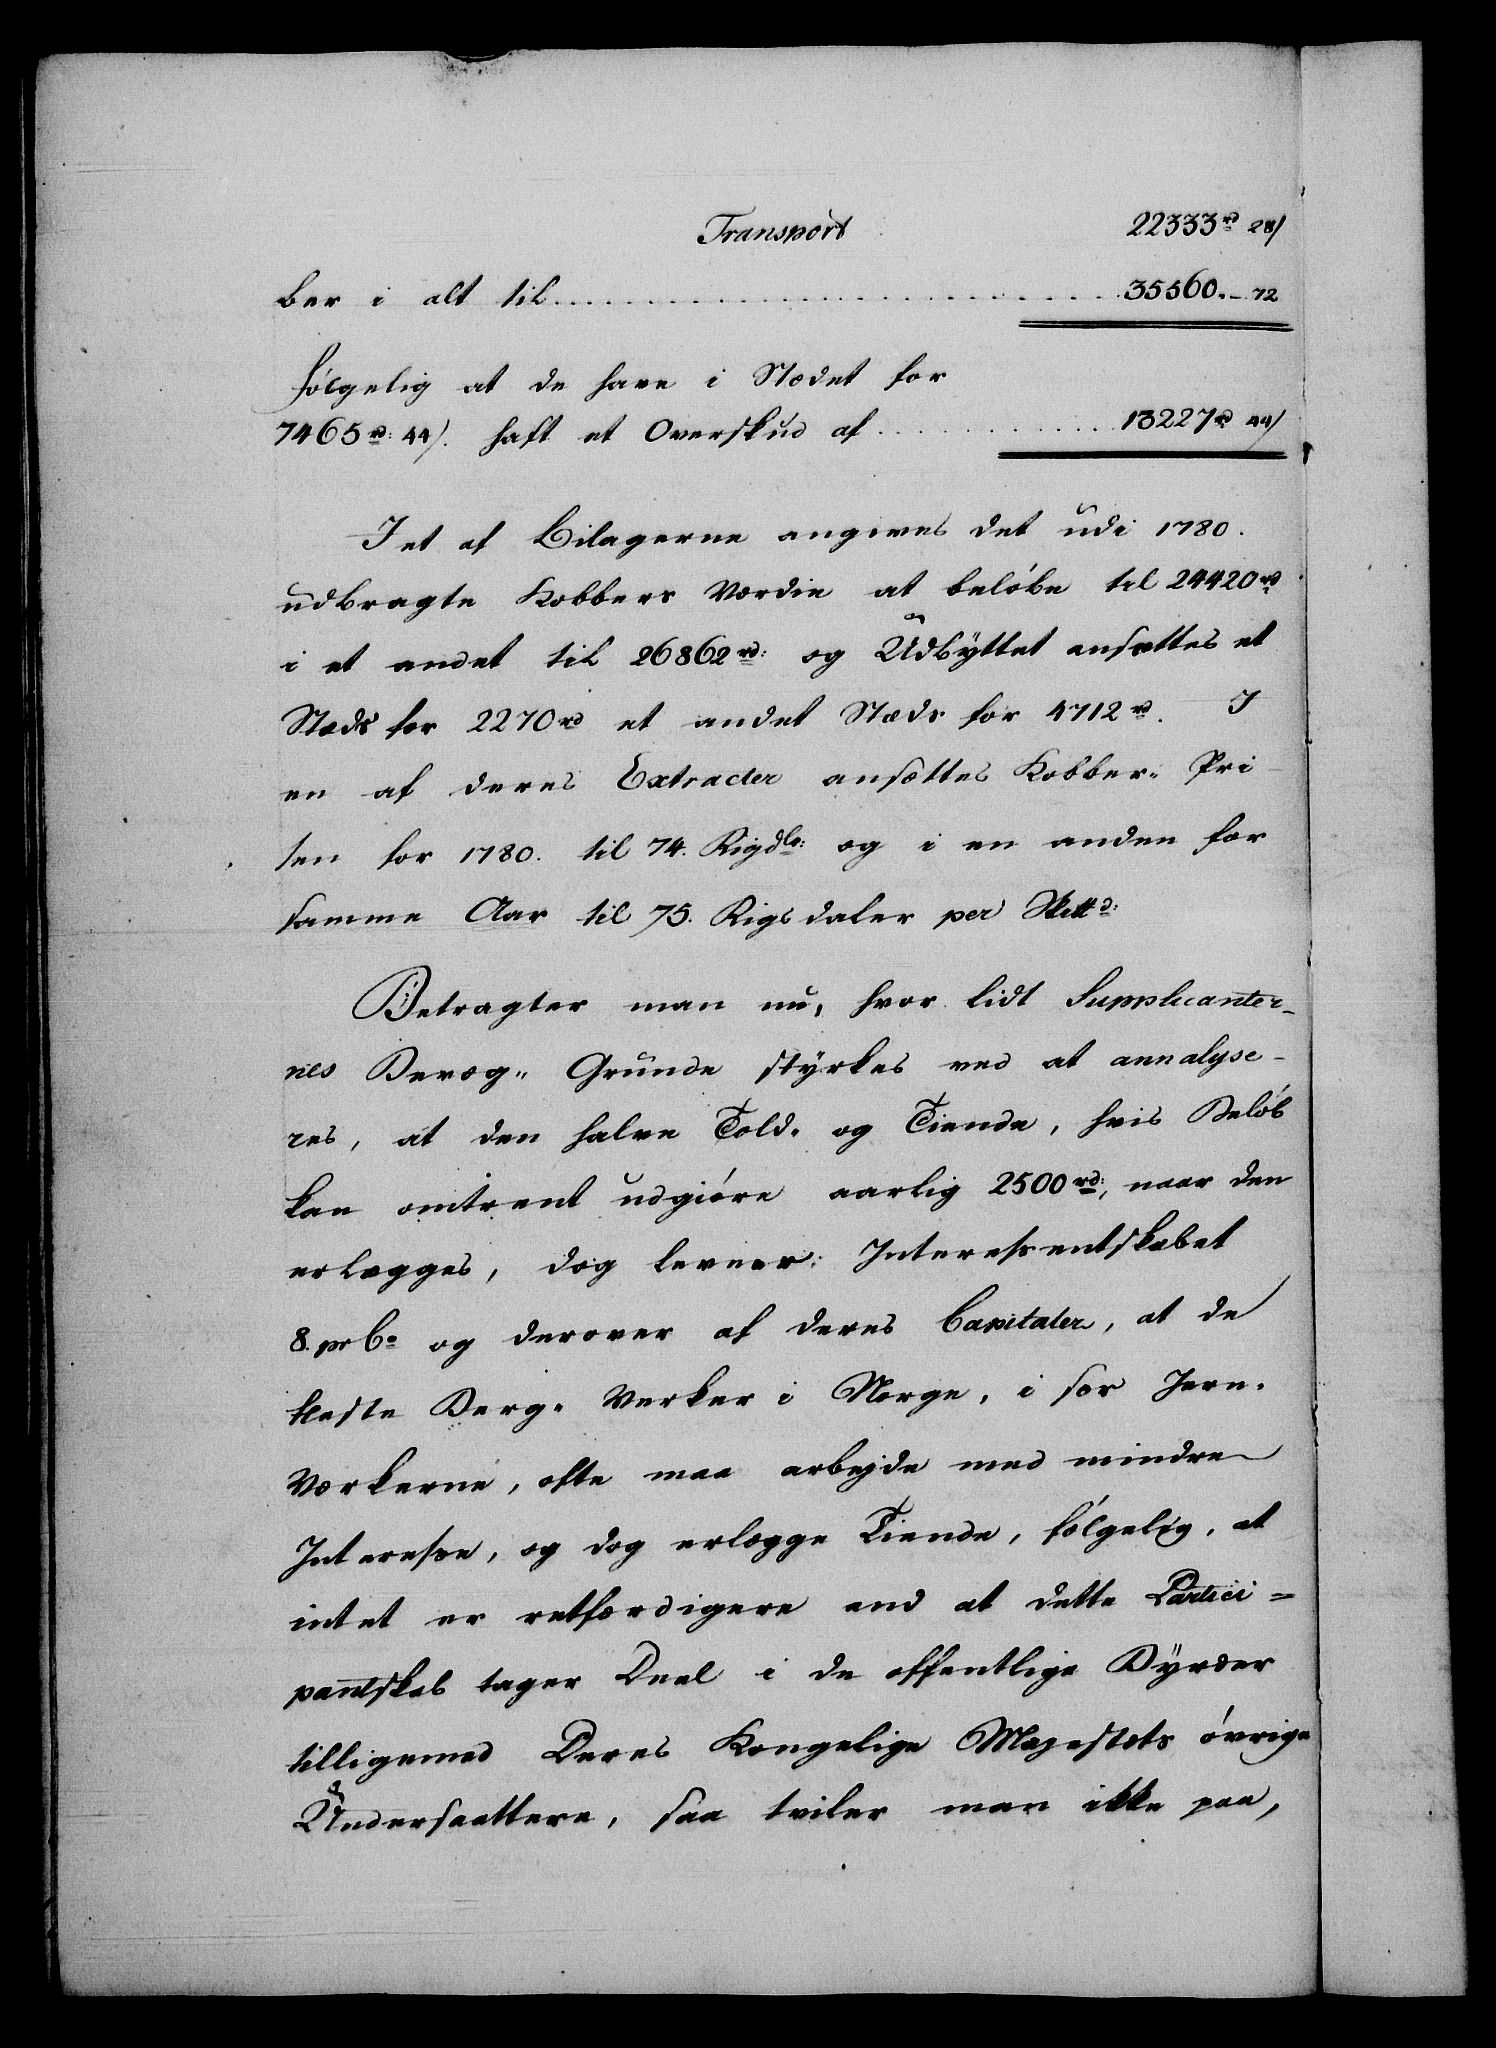 Transport 22333rd 28/
ber i alt til 35560. – 72
følgelig at de have i Stædet for
7465rd: 44/. haft et Overskud af 13227rd 44/
I et af Bilagerne angives det udi 1780.
udbragte Kobbers Værdie at beløbe til 24420rd
i et andet til 26862rd: og Udbyttet ansættes et
Stæds for 2270rd et andet Stæds for 4712rd. I
en af deres Extracter ansættes Kobber-Pri-
sen for 1780. til 74. Rigdlr: og i en anden for
samme Aar til 75. Rigsdaler per Skttd:
Betragter man nu, hvor lidt Supplicanter-
nes Bevæg- Grunde styrkes ved at annalyse-
res, at den halve Told- og Tiende, hvis Beløb
kan omtrent udgiøre aarlig 2500rd:, naar den
erlægges, dog levner Interessentskabet
8. prCo og derover af deres Capitaler, at de
fleste Berg-Verker i Norge, i sær Jern-
Værkerne, ofte maa arbejde med mindre
Interesse, og dog erlægge Tiende, følgelig, at
intet er retfærdigere end at dette Partici=
pantskab tager Deel i de offentlige Byrder
tilligemed Deres Kongelige Majestæts øvrige
Undersaattere, saa tviler man ikke paa,